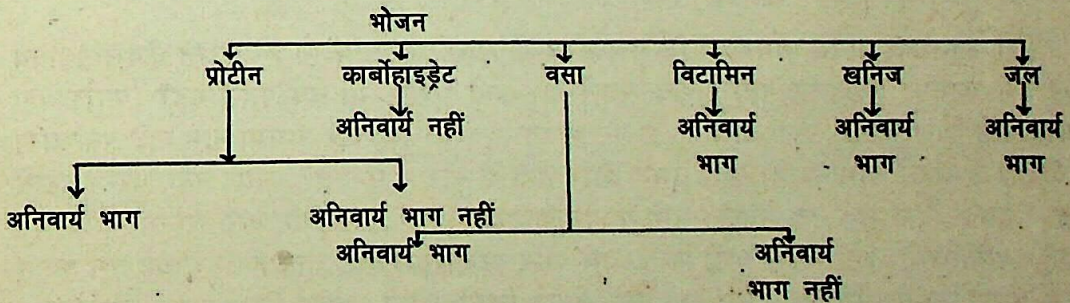 भोजन
प्रोटीन कार्बोहाइड्रेट वसा विटामिन खनिज जल
अनिवार्य नहीं अनिवार्य भाग अनिवार्य भाग अनिवार्य भाग
अनिवार्य भाग अनिवार्य भाग नहीं
अनिवार्य भाग अनिवार्य
भाग नहीं